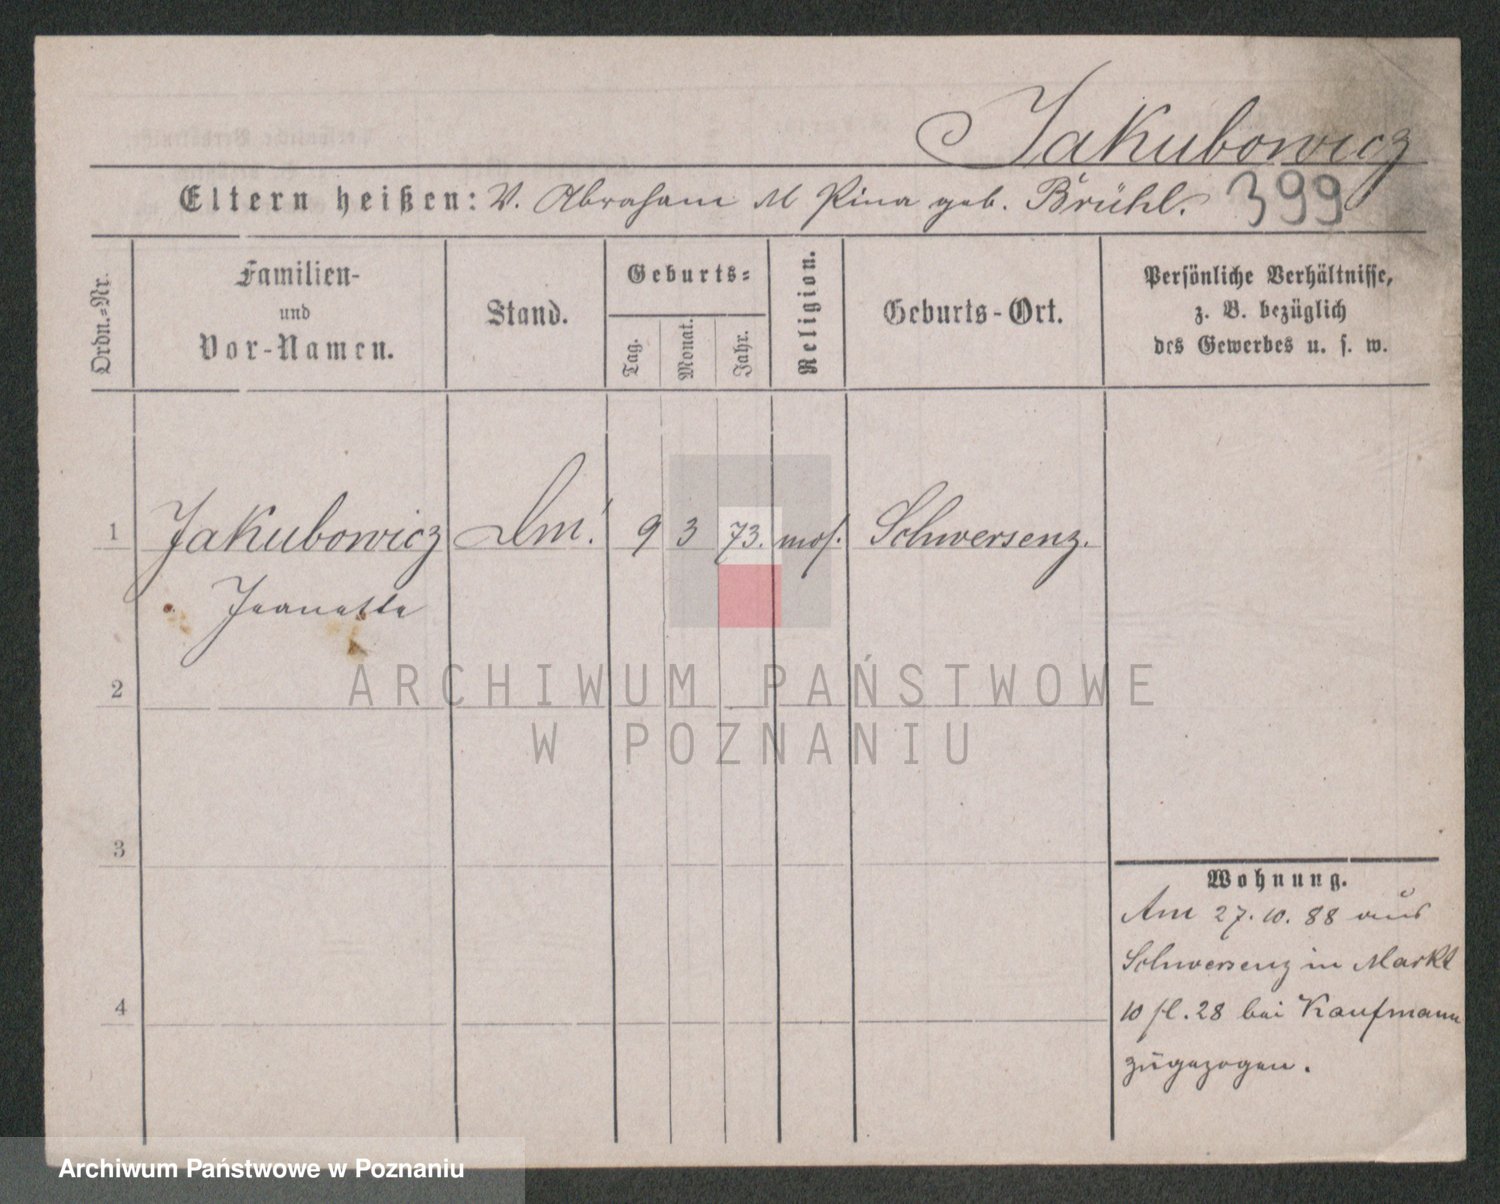 Jakubowicz
Eltern heißen: V. Abraham M Pina geb. Brühl. 399
Ordn.-Nr.
Familien-
und
Vor-Namen.
Stand.
Geburts-
Tag.
Monat.
Jahr.
Religion.
Geburts-Ort.
Persönliche Verhältnisse,
z. B. bezüglich
des Gewerbes u. s. w.
1 Jakubowicz 9 3 73. mos. Schwersenz.
Jeanette
2
ARCHIWUM PAŃSTWOWE
W POZNANIU
3
Wohnung.
Am 27.10.88 aus
Schwersenz in Markt
4
10 fl. 28 bei Kaufmann
zugezogen.
Archiwum Państwowe w Poznaniu